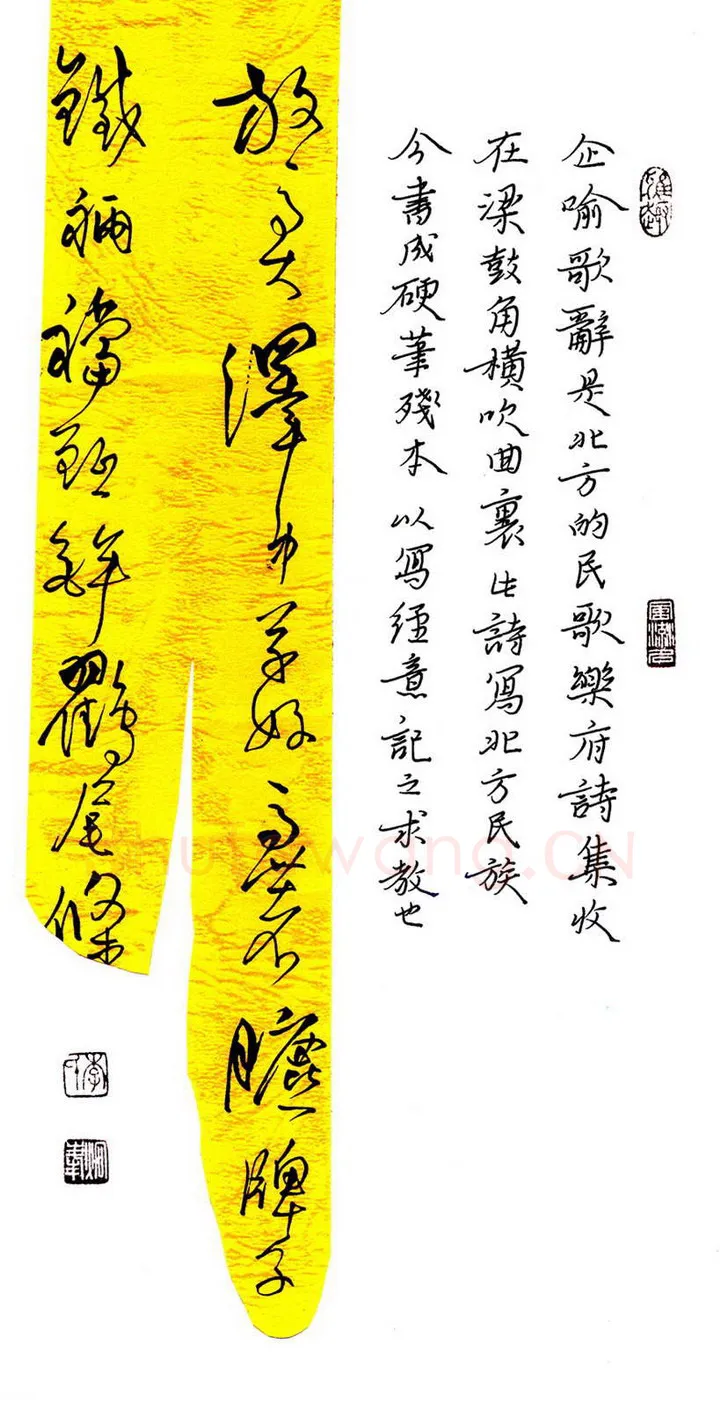 企喻歌辭是北方的民歌樂府詩集收
在梁鼓角橫吹曲裏此詩寫北方民族
今書成硬筆殘本以寫經意記之求教也
放馬大澤中草好馬著臕牌子
鐵裲襠鉾鸐尾條